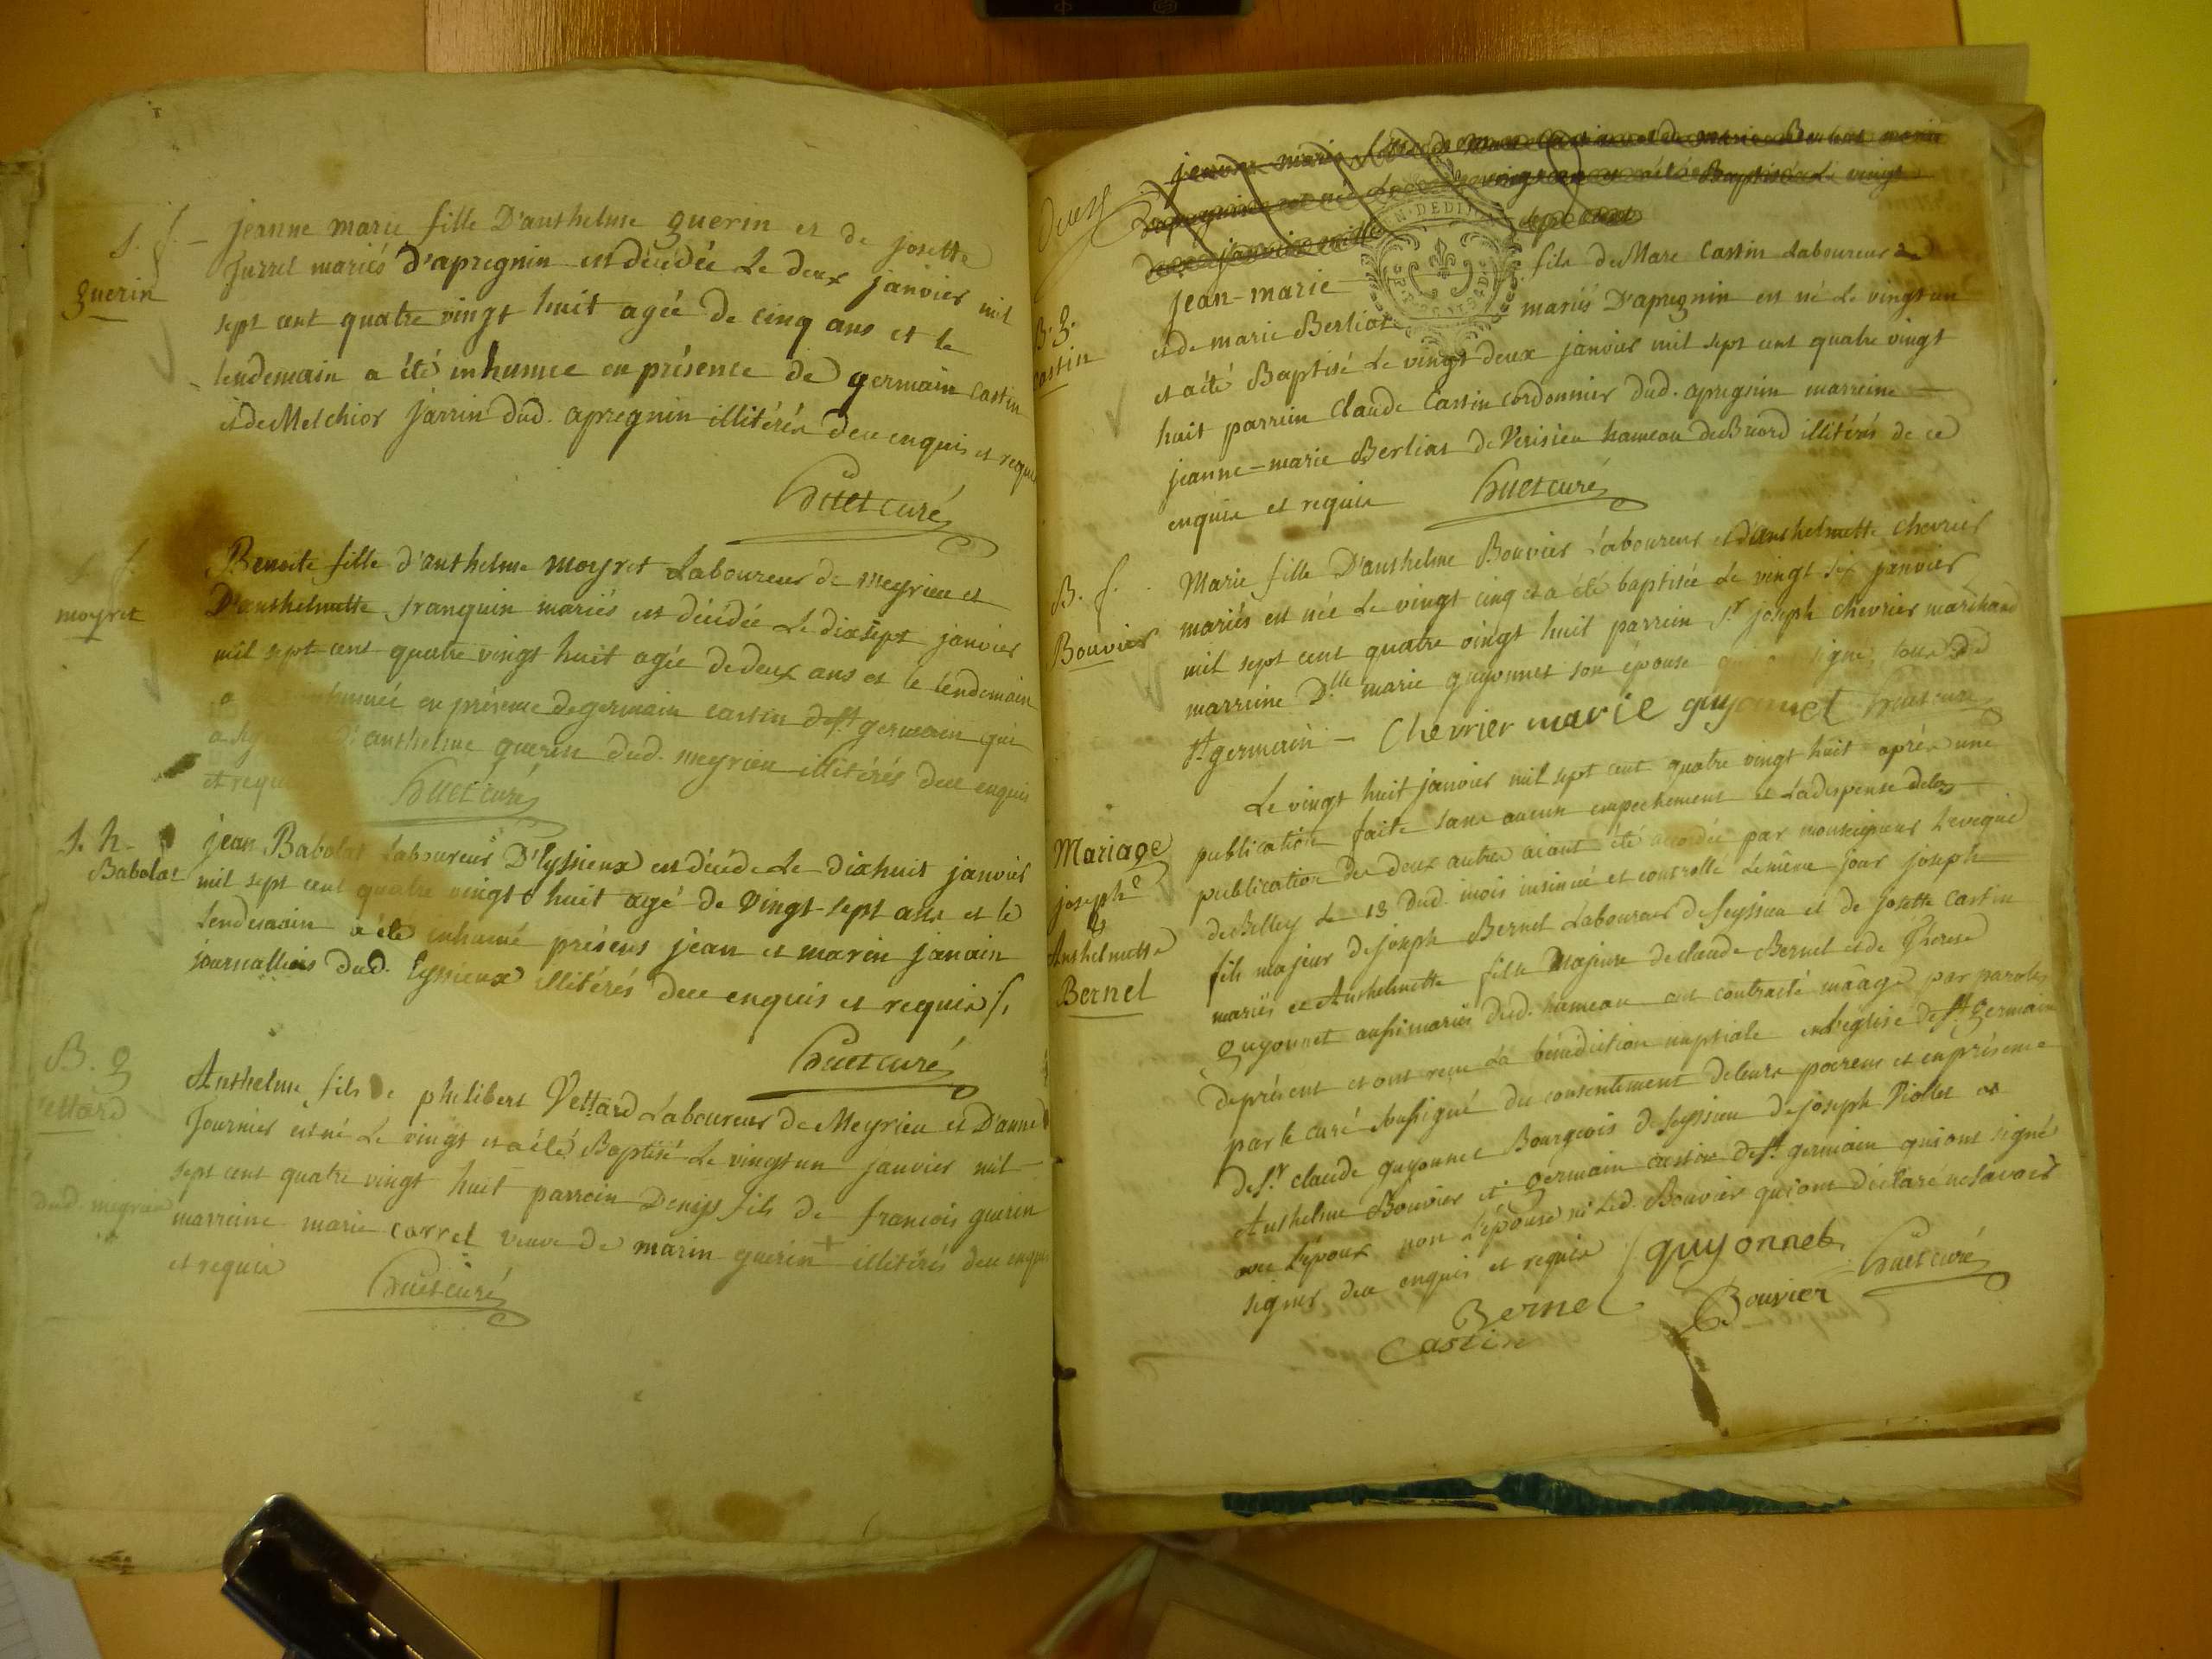 S. f. – jeanne marie fille D'anthelme guerin et de josette
guerin
Jurrel mariés d'apregnin est décédée Le deux janvier mil
sept cent quatre vingt huit agée de cinq ans et le
lendemain a été inhumée en présence de germain Castin
et de Melchior Jarrin dud. apregnin illitérés deu enquis et requis
huet curé
S. f.
moyret
Benoite fille d'anthelme moyret Laboureur de meyrieu et
D'anthelmette franquin mariés est décédée Le dixsept janvier
mil sept cent quatre vingt huit agée de deux ans et le lendemain
a inhumée en présence de germain castin de St. germain qui
a d'anthelme guerin dud. meyrieu illitérés deu enquis
et requis
huet curé
S. h.
Babolat
jean Babolat Laboureur D'Eyssieux est décédé Le dixhuit janvier
mil sept cent quatre vingt huit agé de vingt-sept ans et le
lendemain a été inhumé présens jean et marin janain
journalliers dud. Eyssieux illitérés deu enquis et requis
huet curé
B. g
Vettard
Anthelme fils de philibert Vettard Laboureur de Meyrieu et D'anne
Fournier est né Le vingt et a été Baptisé Le vingt un janvier mil
sept cent quatre vingt huit parrein Denys fils de francois guerin
dud. meyrieu
marreine marie carrel veuve de marin guerin + illitérés deu enquis
et requis
huet curé
jeanne marie
jean-marie fils de Marc Castin Laboureur
B. g.
Castin
et de marie Berliat mariés D'apregnin est né Le vingt un
et a été Baptisé Le vingt deux janvier mil sept cent quatre vingt
huit parrein Claude Castin cordonnier dud. apregnin marreine
jeanne-marie Berliat de Verisieu hameau de Briord illitérés de ce
enquis et requis
huet curé
B. f.
Bouvier
Marie fille D'anthelme Bouvier Laboureur et d'anthelmette chevrier
mariés est née Le vingt cinq et a été baptisée Le vingt six janvier
mil sept cent quatre vingt huit parrein Sr joseph chevrier marchand
marreine Dlle marie guyonnet son épouse qui ont signé, tous dud
St. germain – Chevrier marie guyonnet huet curé
Le vingt huit janvier mil sept cent quatre vingt huit après une
Mariage
joseph
&
Anthelmette
Bernel
publication faite sans aucun empechement et La dispense de la
publication des deux autres aiant été accordée par monseigneur L'eveque
de Belley Le 13 Dud. mois insinué et controllé Le même jour joseph
fils majeur de joseph Bernel Laboureur de Seyssieu et de josette Castin
mariés et Anthelmette fille Majeure de claude Bernel et de Therese
guyonnet aussi mariés dud. hameau ont contracté mâage par paroles
de présent et ont reçu La bénédiction nuptiale en L'église de St. germain
par le curé soussigné du consentement de leurs parens et en présence
de Sr. claude guyonnet Bourgeois de Seyssieu de joseph Viollet et
Anthelme Bouvier et germain castin de St. germain qui ont signé
avec L'époux non L'épouse ni Led. Bouvier qui ont déclaré ne savoir
signer deu enquis et requis
guyonnet
huet curé
Bernel
Bouvier
Castin